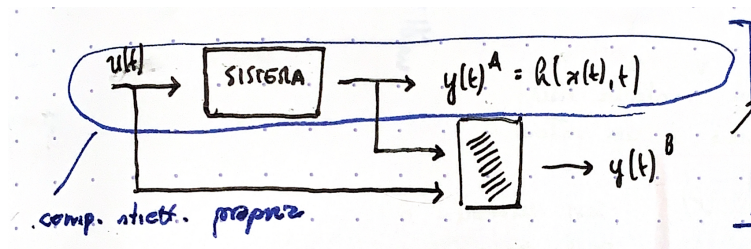 u(t)
SISTEMA
y(t)ᴬ = h(x(t), t)
y(t)ᴮ
comp. strett. propria